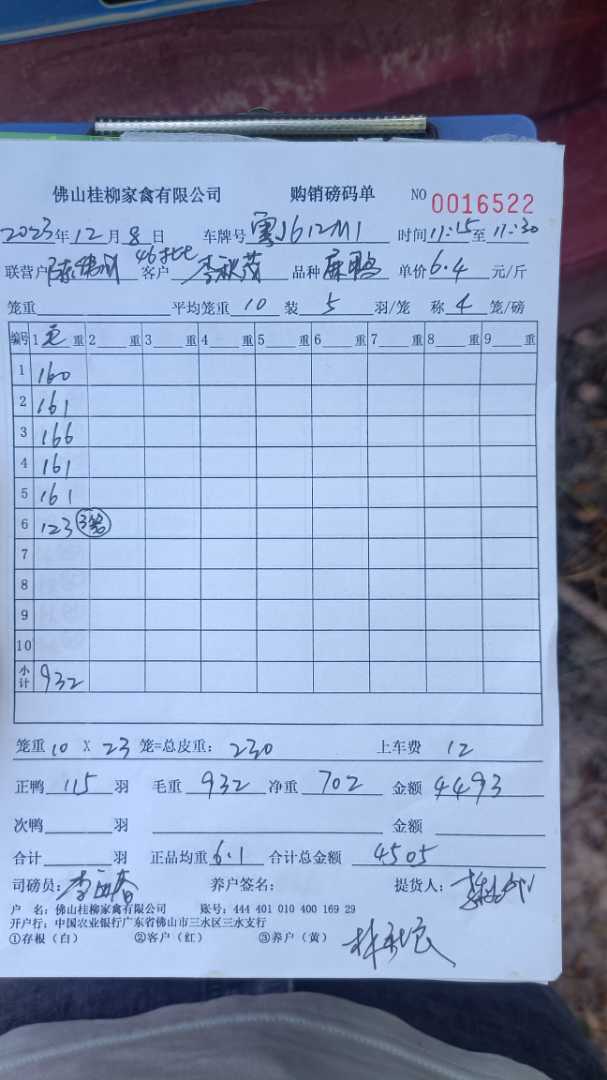 佛山桂柳家禽有限公司 购销磅码单 NO 0016522
2023年12月8日 车牌号 粤J612M1 时间11:15至11:30
联营户 46批 客户 李秋茂 品种 麻鸭 单价6.4元/斤
笼重 平均笼重10 装5羽/笼 称4笼/磅
编号 1毛重 2重 3重 4重 5重 6重 7重 8重 9重
1 160
2 161
3 166
4 161
5 161
6 123 3笼
7
8
9
10
小计 932
笼重10 X 23笼=总皮重：230 上车费 12
正鸭115羽 毛重932 净重702 金额4493
次鸭 羽 金额
合计 羽 正品均重6.1 合计总金额4505
司磅员： 养户签名： 提货人：
户 名：佛山桂柳家禽有限公司 账号：444 401 010 400 169 29
开户行：中国农业银行广东省佛山市三水区三水支行
①存根（白） ②客户（红） ③养户（黄）